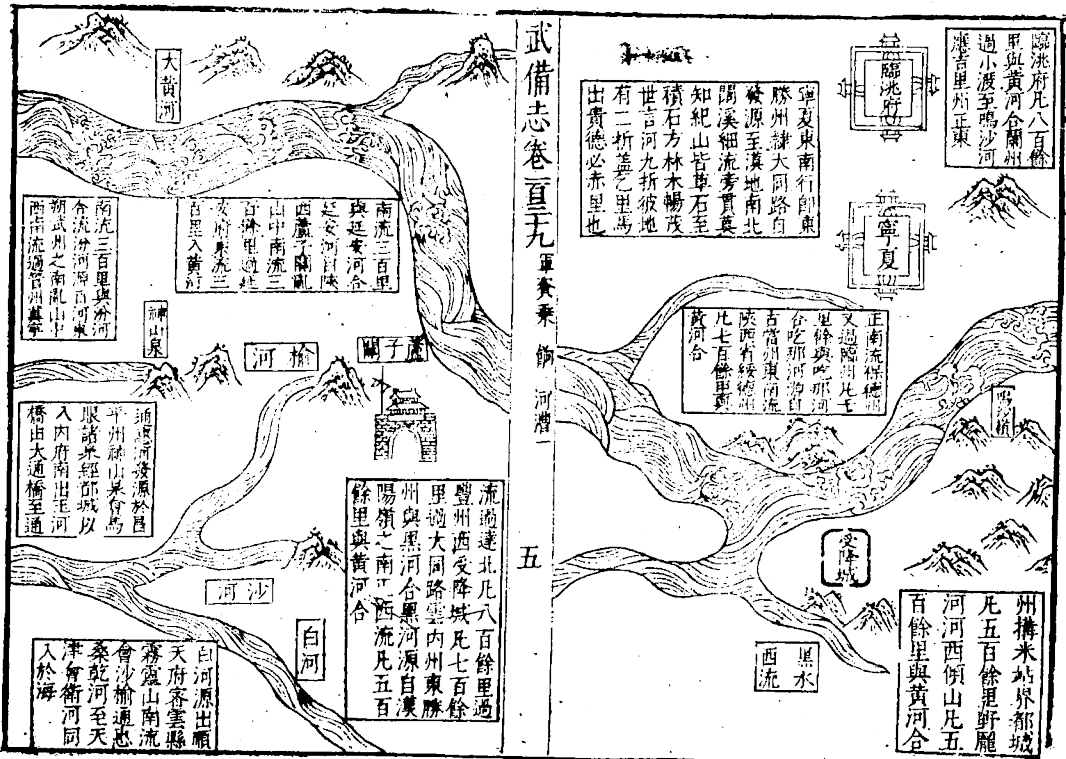 臨洮府凡八百餘
里與黃河合蘭州
過小渡至鳴沙河
應吉里州正東
臨洮府
寧夏
寧夏東南行即東
勝州隷大同路自
發源至漢地南北
闊溪細流旁貫莫
知紀山皆草石至
積石方林木暢茂
世言河九折彼地
有二折蓋乞里馬
出貴德必赤里也
正南流保德州
又過臨州凡千
里餘與吃那河
合吃那河源自
古宥州東南流
陝西省綏德州
凡七百餘里與
黃河合
鳴沙
受降城
黑水
西流
州搆米站界都城
凡五百餘里野龐
河河西傾山凡五
百餘里與黃河合
武備志卷百三十九 軍資乘 餉 河漕一
五
大黃河
南流三百里
與延安河合
延安河自陝
西蘆子關亂
山中南流三
百餘里過延
安府東流三
百里入黃河
南流三百里與汾河
合流汾河源自河東
朔武州之南亂山中
西南流過管州冀寧
神山泉
榆河
蘆子關
通惠河發源於昌
平州神山泉會馬
眼諸泉經都城以
入內府南出玉河
橋出大通橋至通
流過達北凡八百餘里過
豐州西受降城凡七百餘
里過大同路雲內州東勝
州與黑河合黑河源自漢
陽嶺之南正西流凡五百
餘里與黃河合
沙河
白河
白河源出順
天府密雲縣
霧靈山南流
會沙榆通惠
桑乾河至天
津會衛河同
入於海